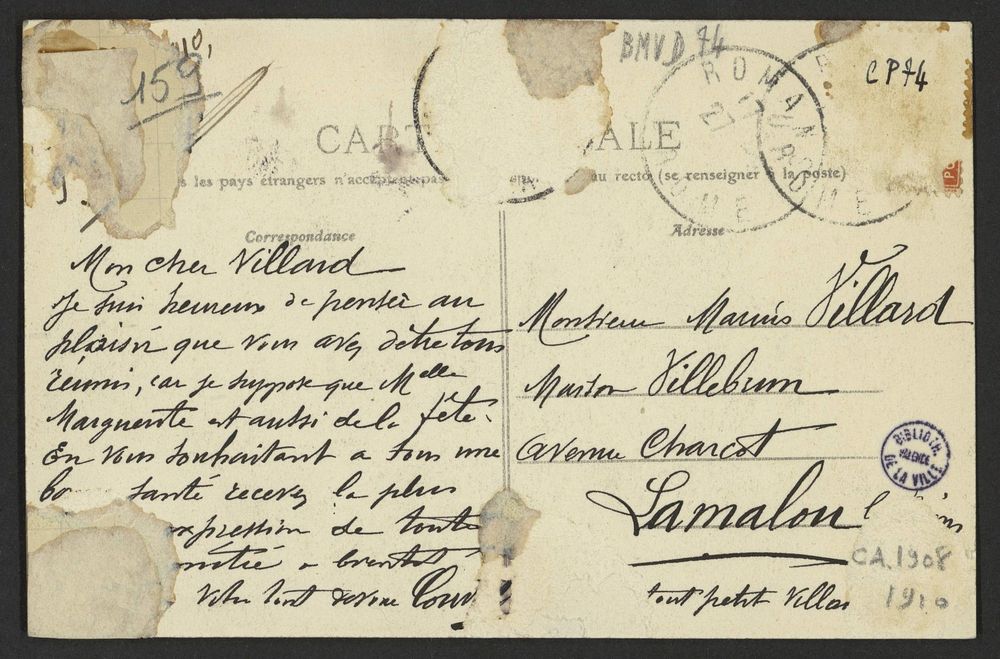 159
BMVD 74
CP74
ROMANS
DROME
ROMANS
DROME
CART ALE
s les pays étrangers n'acceptent pas au recto (se renseigner à la poste)
Correspondance
Mon cher Villard
Je suis heureux de pensée au
plaisir que vous avez d'être tous
réunis, car je suppose que Melle
Marguerite est aussi de la fête.
En vous souhaitant a tous une
bo santé recevez la plus
xpression de toute
mitié a bientôt
Votre tout dévoué
Adresse
Monsieur Marius Villard
Maison Villebrun
avenue Charcot
Lamalou l
tout petit Villa
BIBLIOTH.
VALENCE
DE LA VILLE
CA.1908
1910